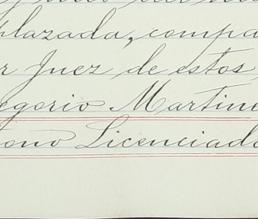 plazada, compa
r Juez de estos
egorio Martine
ono Licenciado